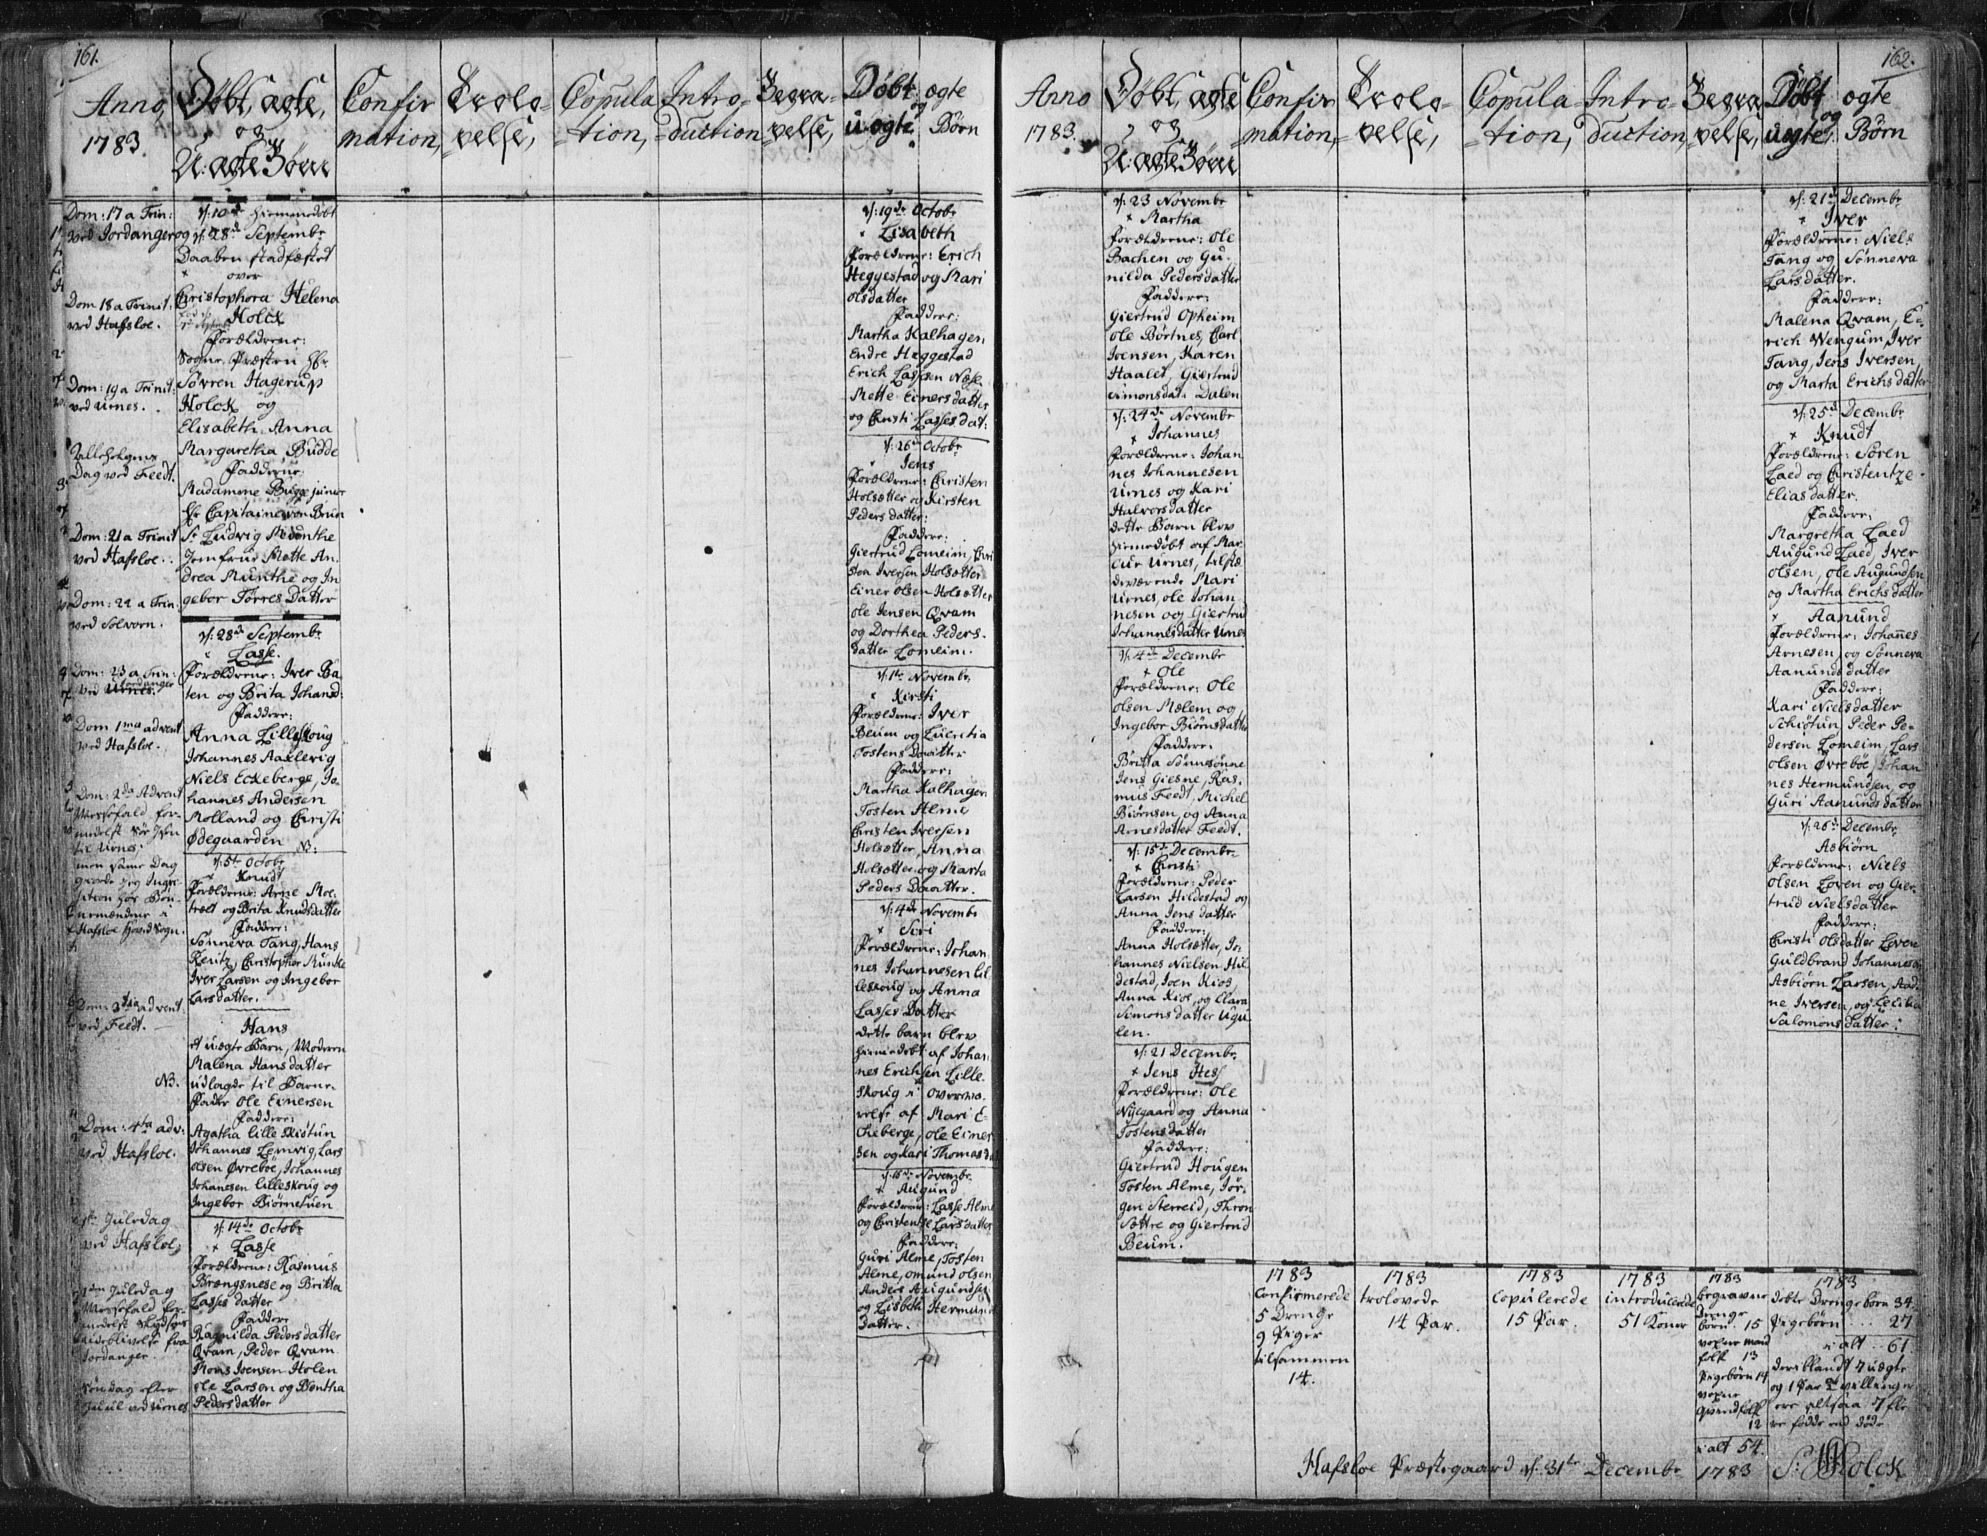 161.
Anno
1783.
Døbt, ægte,
og
U: ægte Børn
Confir
mation,
Trolo-
velse,
Copula
-tion,
Intro-
duction
Begra-
velse,
Døbt ægte
og
u:ægte Børn
Dom: 17 a Trin:
ved Jordanger
Dom 18 a Trinit:
ved Hafsloe.
Dom: 19 a Trinit:
ved Urnes.
Allehelgens
Dag ved Feedt.
Dom: 21 a Trinit
ved Hafsloe.
Dom: 22 a Trin:
ved Solvorn.
Dom: 23 a Trin:
ved Jordanger
Dom 1ma advent
ved Hafsloe.
Dom: 2da Advent
Messefald for-
medelst
til Urnes:
men samme Dag
giorde jeg
Hafsloe Hoved Sogn.
Dom 3tia advent:
ved Feedt.
NB.
Dom: 4ta adv:
ved Hafsloe.
1ste Juledag
ved Hafsloe,
2den Juledag
Messefald for-
medelst Skydsens
udeblivelse fra
Jordanger.
Søndag efter
Juul ved Urnes
og d: 28d Septembr
Daaben stadfæstet
over
Christophora Helena
Holck
Forældrene:
Sogne Præsten Hr
Søvren Hagerup
Holck og
Elisabeth Anna
Margaretha Budde
Faddere:
Madamme Bugge junior
Hr Capitaine von Brun
Sr Ludvig Munthe
Jomfrue Mette An-
drea Munthe og In
gebor Torres Datter
d: 28de Septembr
Lasse.
Forældrene: Iver Ba-
ten og Brita Johansd:
Faddere:
Anna Lilleskoug
Johannes Aaxlevig
Niels Eckeberge, Jo-
hannes Andersen
Molland og Christi
Ødegaarden NB:
d: 5te Octobr
Knudt
Forældrene: Arne Moe-
træet og Brita Knudsdatter
Faddere:
Sønneva Tang, Hans
Rentz, Christopher Munthe
Iver Larsen og Ingebor
Larsdatter.
Hans
et u:ægte Barn, Moderen
Malena Hansdatter
udlagde til Barne-
Fader Ole Einersen
Faddere:
Agatha lille Skiøtun
Johannes Lemvig, Lars
olsen Øvreboe, Johannes
Johanesen lilleskoug og
Ingebor Biørnetuen
d: 14de Octobr
Lasse
Forældrene: Rasmus
Brængsnese og Britta
Lasses datter
Faddere
Ragnilda Peders datter
Qvam, Peder Qvam
Mons Joensen Holen
ole Larsen og Bentha
Pedersdatter
d: 19de Octobr
Lisabeth
Forældrene: Erich
Heggestad og Mari
Olsdatter
Faddere:
Martha Kalhagen
Endre Heggestad
Erich Lassen Næse
Mette Einersdatter
og Christi Lasses dat:
d: 26de Octobr
Jens
Forældrene: Christen
Holsætter og Kirsten
Peders datter:
Faddere:
Giertrud Lomeim, Chri
sten Iversen Holsætter
Einer olsen Holsætter
Ole Jensen Qvam
og Dorthea Peders-
datter Lomeim.
d: 1te Novembr.
Kirsti
Forældrene: Iver
Beum og Lucretia
Tostens Daatter
Faddere:
Martha Kalhagen
Tosten Alme
Christen Iversen
Holsætter, Anna
Holsætter og Marta
Peders Daatter.
d: 4de Novembr
Siri
Forældrene: Johan
nes Johannesen lil
leskoug og Anna
Lasses Datter
dette barn blev
hiemmedøbt af Johan
nes Erichsen Lille-
skoug i overvæ-
relse af Mari E-
cheberge, Ole Einer
sen og Kari Thomasda
d: 16de Novembr.
Augund
Forældrene: Lasse Alme
og Christentze Larsdatter
Faddere:
Guri Alme, Tosten
Alme, omund olsen
Anders Augundsen
og Lisbeth Hermund
Datter.
162.
Anno
1783.
Døbt, ægte
og
U: ægte Børn
Confir
mation,
Trolo-
velse,
Copula-
-tion,
Intro-
duction,
Begra-
velse,
Døbt ægte
og
uægte, Børn
d: 23 Novembr
Martha
Forældrene: Ole
Bachen og Gu-
nilda Pedersdatter
Faddere:
Giertrud Opheim
Ole Børtnes, Carl
Joensen, Karen
Haalet, Giertrud
Simonsdat: Dalen
d: 24de Novembr
Johannes
Forældrene: Johan
nes Johannesen
Urnes og Kari
Halvorsdatter
dette Barn blev
hiemmedøbt af Mar-
cus Urnes, tilstæ
deværende Mari
Urnes, ole Johan
nesen og Giertrud
Johannesdatter Urnes
d: 4de Decembr
Ole
Forældrene: Ole
olsen Mælem og
Ingebor Biørnsdatter
Faddere:
Britta Sønnesønne
Jens Giesne, Ras-
mus Feedt, Michel
Biørnsen, og Anna
Arnesdatter Feedt.
d: 15de Decembr.
Christi
Forældrene: Peder
Larsen Hildestad og
Anna Jens datter
Faddere:
Anna Holsætter, Jo-
hannes Nielsen Hil-
destad, Joen Kios,
Anna Kios, og Clara
Simons datter Ugu
len.
d: 21 Decembr.
Jens Hess
Forældrene: Ole
Nyegaard og Anna
Tostensdatter
Faddere:
Giertrud Hougen
Tosten Alme, Jør-
gen Sterreid, Thron
Sættre og Giertrud
Beum.
d: 21de Decembr
Iver
Forældrene: Niels
Tang og Sønneva
Larsdatter.
Faddere:
Malena Qvam, E-
rich Wengum, Iver
Tang, Jens Iversen,
og Marta Erichs datter
d: 25d Decembr
Knudt
Forældrene: Søren
Laed og Christentze
Elias datter.
Faddere:
Margretha Laed
Augund Laed, Iver
olsen, ole Augundsen
og Martha Erichs datter
Aamund
Forældrene: Johannes
Arnesen, og Sønneva
Aamunds datter
Faddere:
Kari Nielsdatter
Schiøtun, Peder Pe-
dersen Lomeim, Lars
olsen Øvreboe, Johan
nes Hermundsen, og
Guri Aamunds datter
d: 26de Decembr
Asbiørn
Forældrene: Niels
Olsen Loven og Gier-
trud Nielsdatter
Faddere:
Christi Olsdatter Loven
Guldbrand Johannes
Asbiørn Larsen, Aad-
ne Iversen, og Cecilia
Salomons datter:
1783
Confirmerede
5 Drenge
9 Piger
tilsammen
14.
1783
trolovede
14 Par.
1783
copulerede
15 Par.
1783
introducerede
51 Koner
1783
begravne
drenge
børn. 15
voxne mand
folk 13
Pigebørn 14
voxne
Qvindfolk
12
i alt 54.
1783
døbte Drengebørn 34.
Pigebørn ... 27
i alt .. 61
deriblandt 4 uægte
og 1 Par tvillinger
ere altsaa 7 fle-
re fødde end døde
Hafsloe Præstegaard d: 31te Decembr 1783 S: H Holck